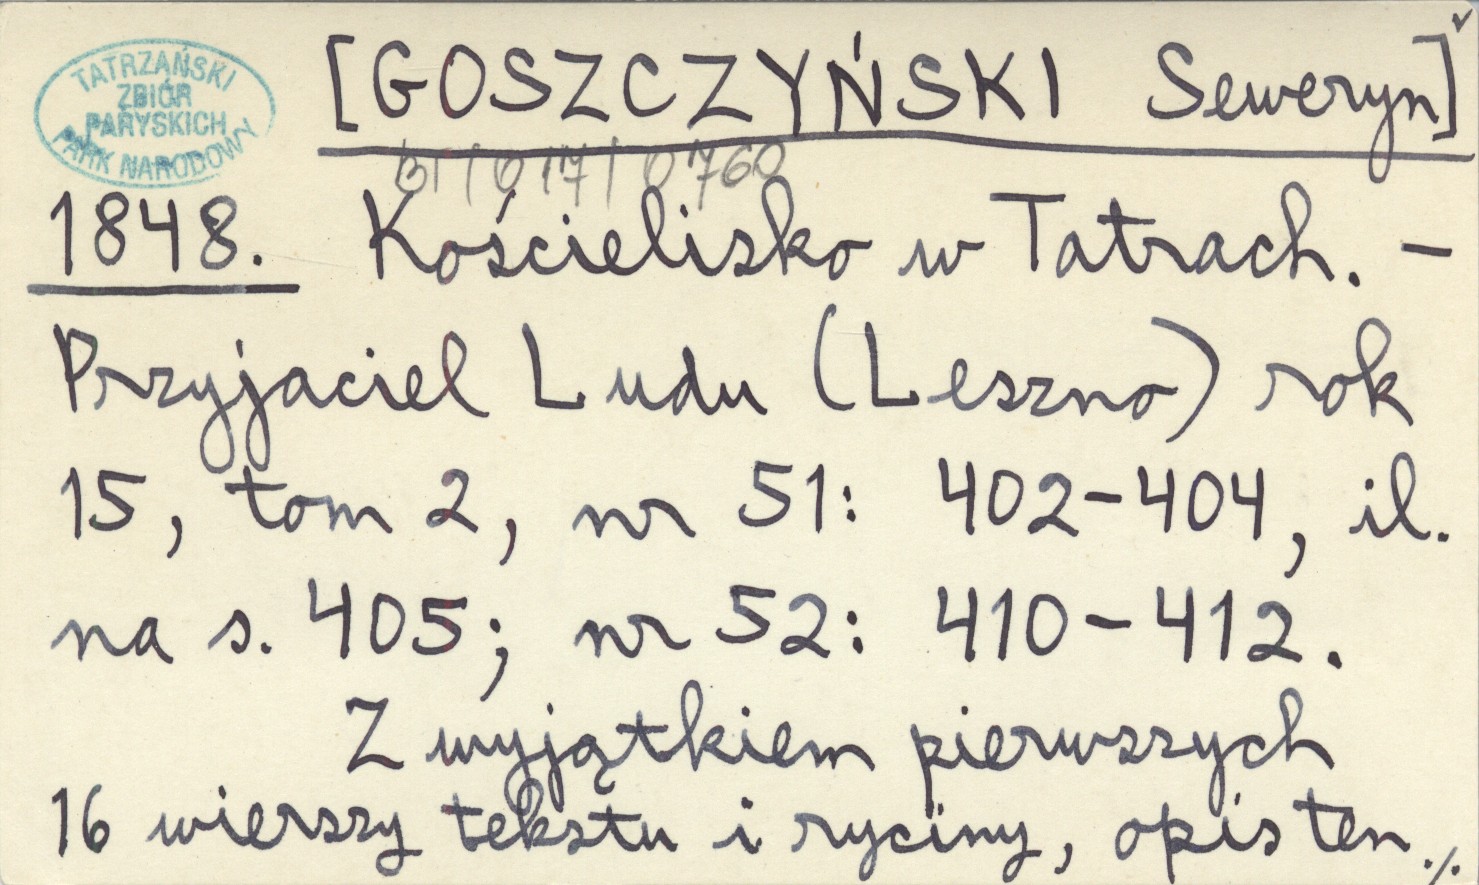 TATRZAŃSKI
ZBIÓR
PARYSKICH
PARK NARODOWY
[GOSZCZYŃSKI Seweryn]
1848. Kościelisko w Tatrach. -
Przyjaciel Ludu (Leszno) rok
15, tom 2, nr 51: 402-404, il.
na s. 405; nr 52: 410-412.
Z wyjątkiem pierwszych
16 wierszy tekstu i ryciny, opis ten ./.